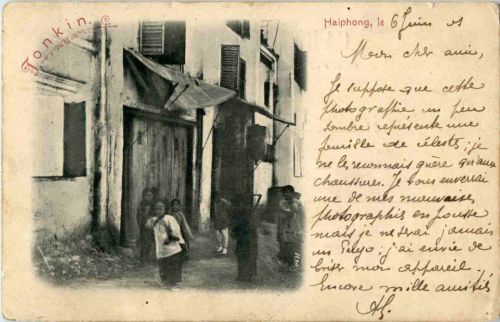 Tonkin.
Haiphong, le 6 Juin 01
Mon cher ami,
Je suppose que cette
photographie un peu
sombre représente une
famille de célestes, je
ne les reconnais guère qu'aux
chaussures. Je vous enverrai
une de mes mauvaises
photographies en pousse
mais je ne serai jamais
un j'ai envie de
briser mon appareil.
Encore mille amitiés